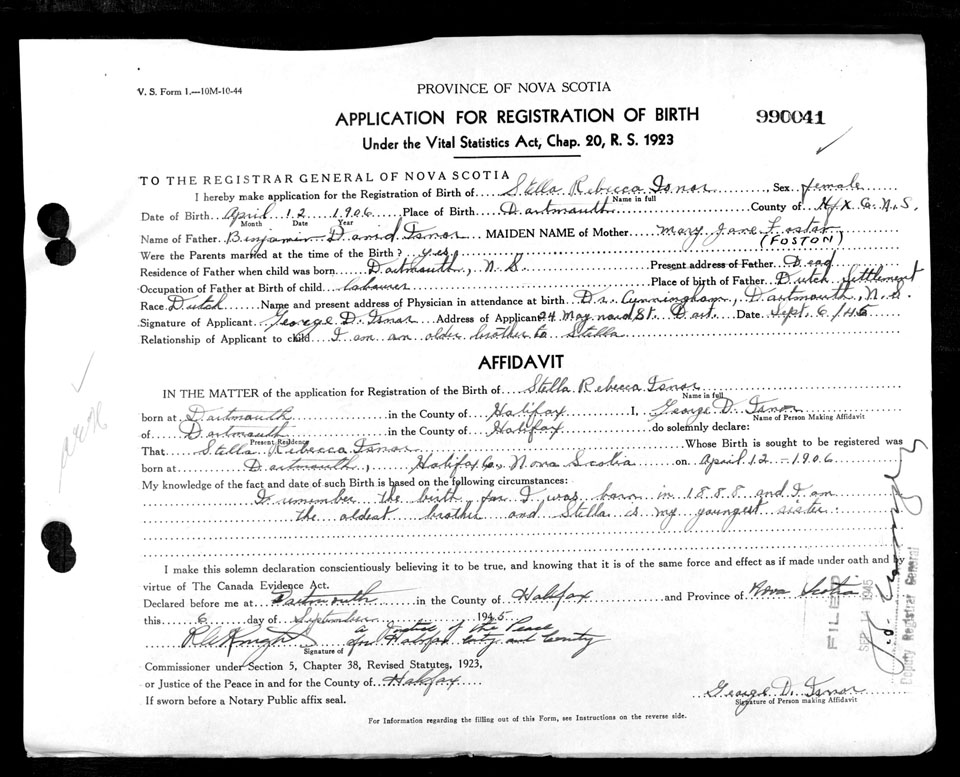 V. S. Form 1.—10M-10-44
PROVINCE OF NOVA SCOTIA
APPLICATION FOR REGISTRATION OF BIRTH
990041
Under the Vital Statistics Act, Chap. 20, R. S. 1923
TO THE REGISTRAR GENERAL OF NOVA SCOTIA
I hereby make application for the Registration of Birth of Stella Rebecca Isnor, Sex female
Name in full
Date of Birth April 12 1906 Place of Birth Dartmouth County of Hfx Co. N.S.
Month Date Year
Name of Father Benjamin David Isnor MAIDEN NAME of Mother Mary Jane Foster
(FOSTON)
Were the Parents married at the time of the Birth? yes
Residence of Father when child was born Dartmouth, N.S. Present address of Father Dead
Occupation of Father at Birth of child Labourer Place of birth of Father Dutch Settlement
Race Dutch Name and present address of Physician in attendance at birth Dr. Cunningham, Dartmouth, N.S.
Signature of Applicant George D. Isnor Address of Applicant 24 Maynard St. Dart. Date Sept. 6/45
Relationship of Applicant to child I am an older brother to Stella
AFFIDAVIT
IN THE MATTER of the application for Registration of the Birth of Stella Rebecca Isnor
Name in full
born at Dartmouth in the County of Halifax I, George D. Isnor
Name of Person Making Affidavit
of Dartmouth in the County of Halifax do solemnly declare:
Present Residence
That Stella Rebecca Isnor Whose Birth is sought to be registered was
born at Dartmouth, Halifax Co., Nova Scotia on April 12 - 1906
My knowledge of the fact and date of such Birth is based on the following circumstances:
I remember the birth for I was born in 1888 and I am
the oldest brother and Stella is my youngest sister.
I make this solemn declaration conscientiously believing it to be true, and knowing that it is of the same force and effect as if made under oath and by
virtue of The Canada Evidence Act.
Declared before me at Dartmouth in the County of Halifax and Province of Nova Scotia
this 6 day of September 1945
R A Knight a Justice of the Peace
for Halifax City and County
Signature of
Commissioner under Section 5, Chapter 38, Revised Statutes, 1923,
or Justice of the Peace in and for the County of Halifax
George D. Isnor
Signature of Person making Affidavit
If sworn before a Notary Public affix seal.
For Information regarding the filling out of this Form, see Instructions on the reverse side.
FILED
SEP 14 1945
Deputy Registrar General